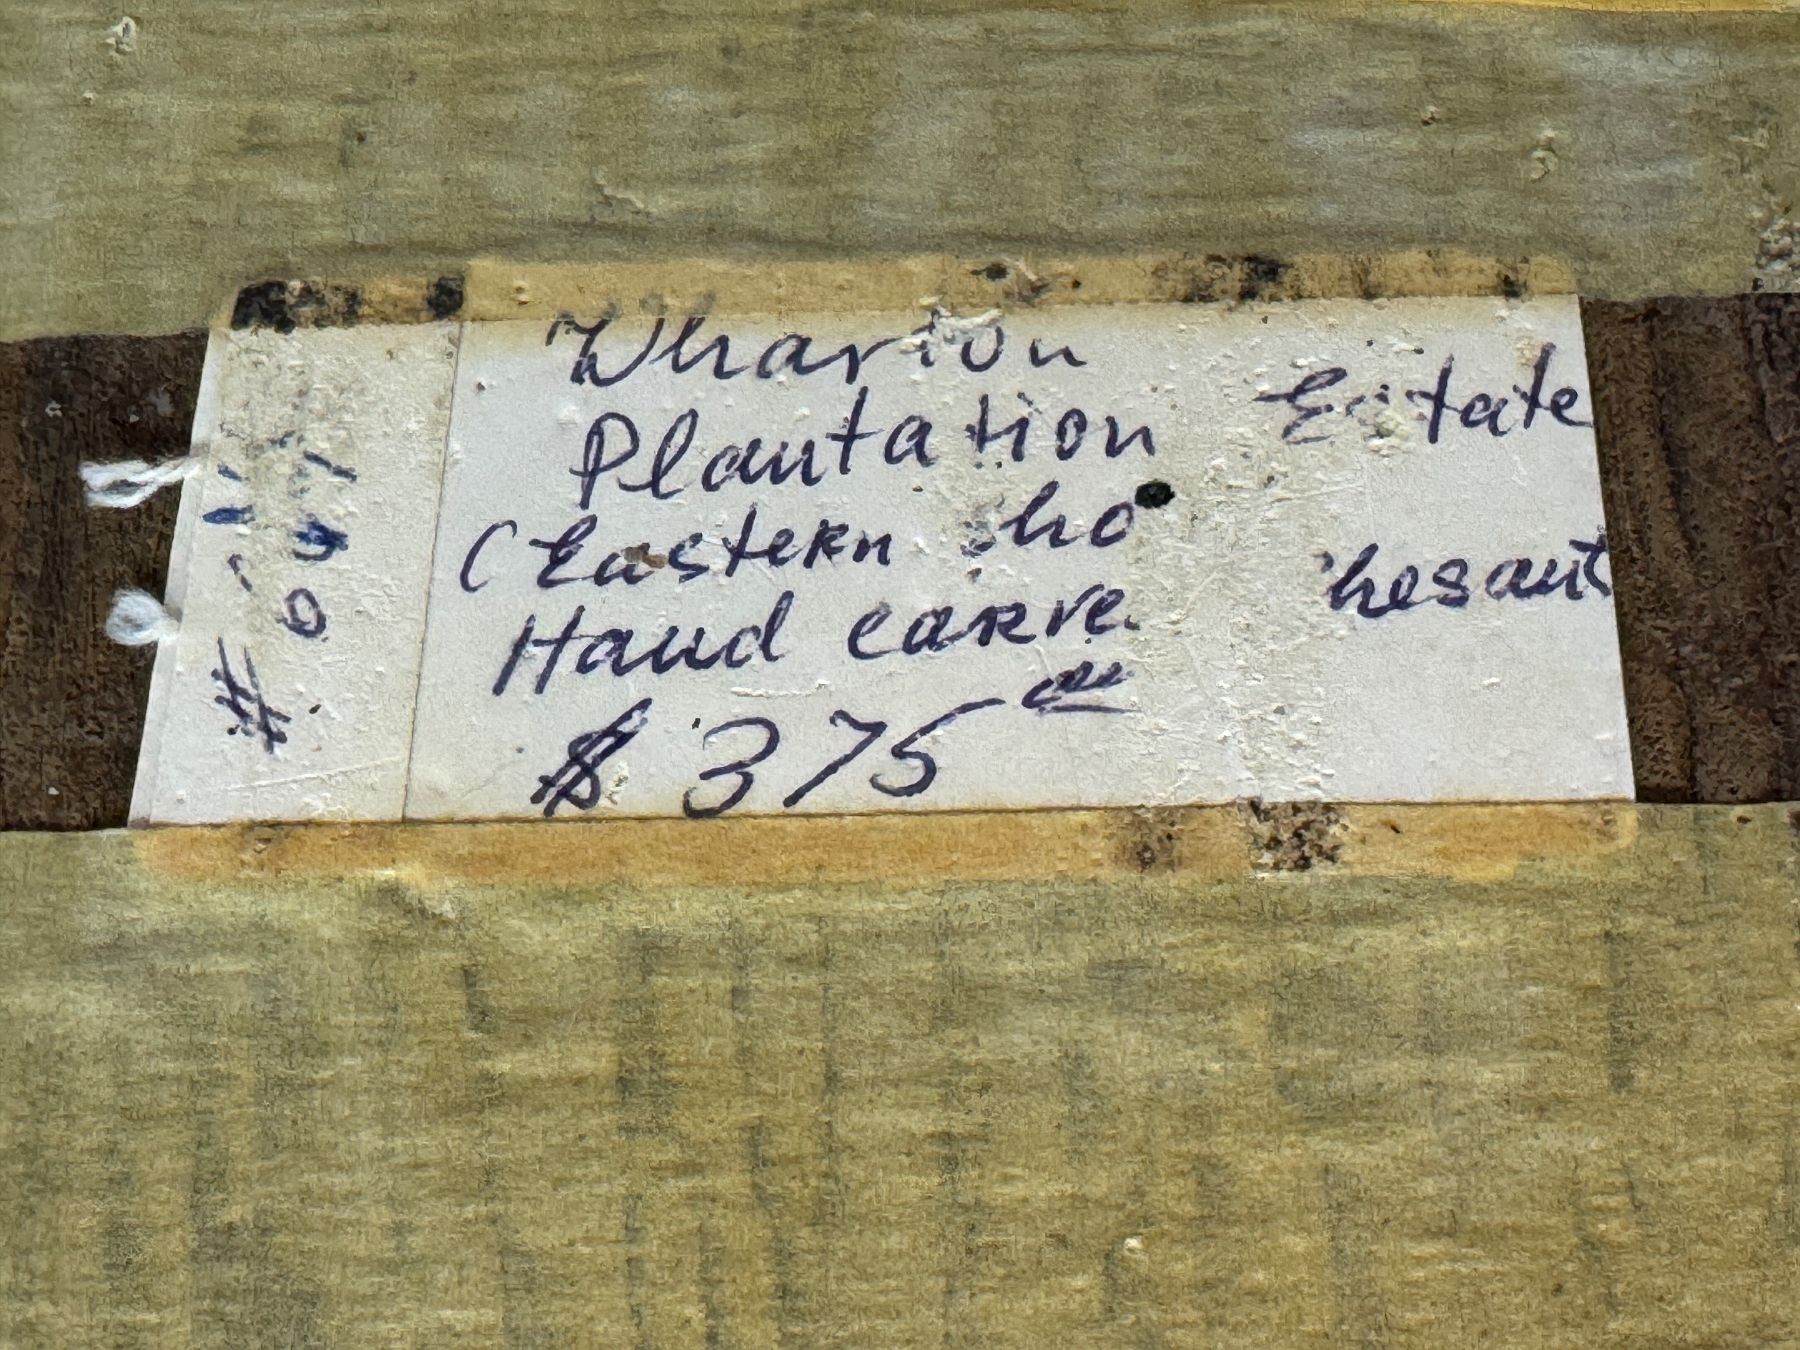 Wharton
Plantation Estate
(Eastern Sho
Hand carve hesant
$ 375 00